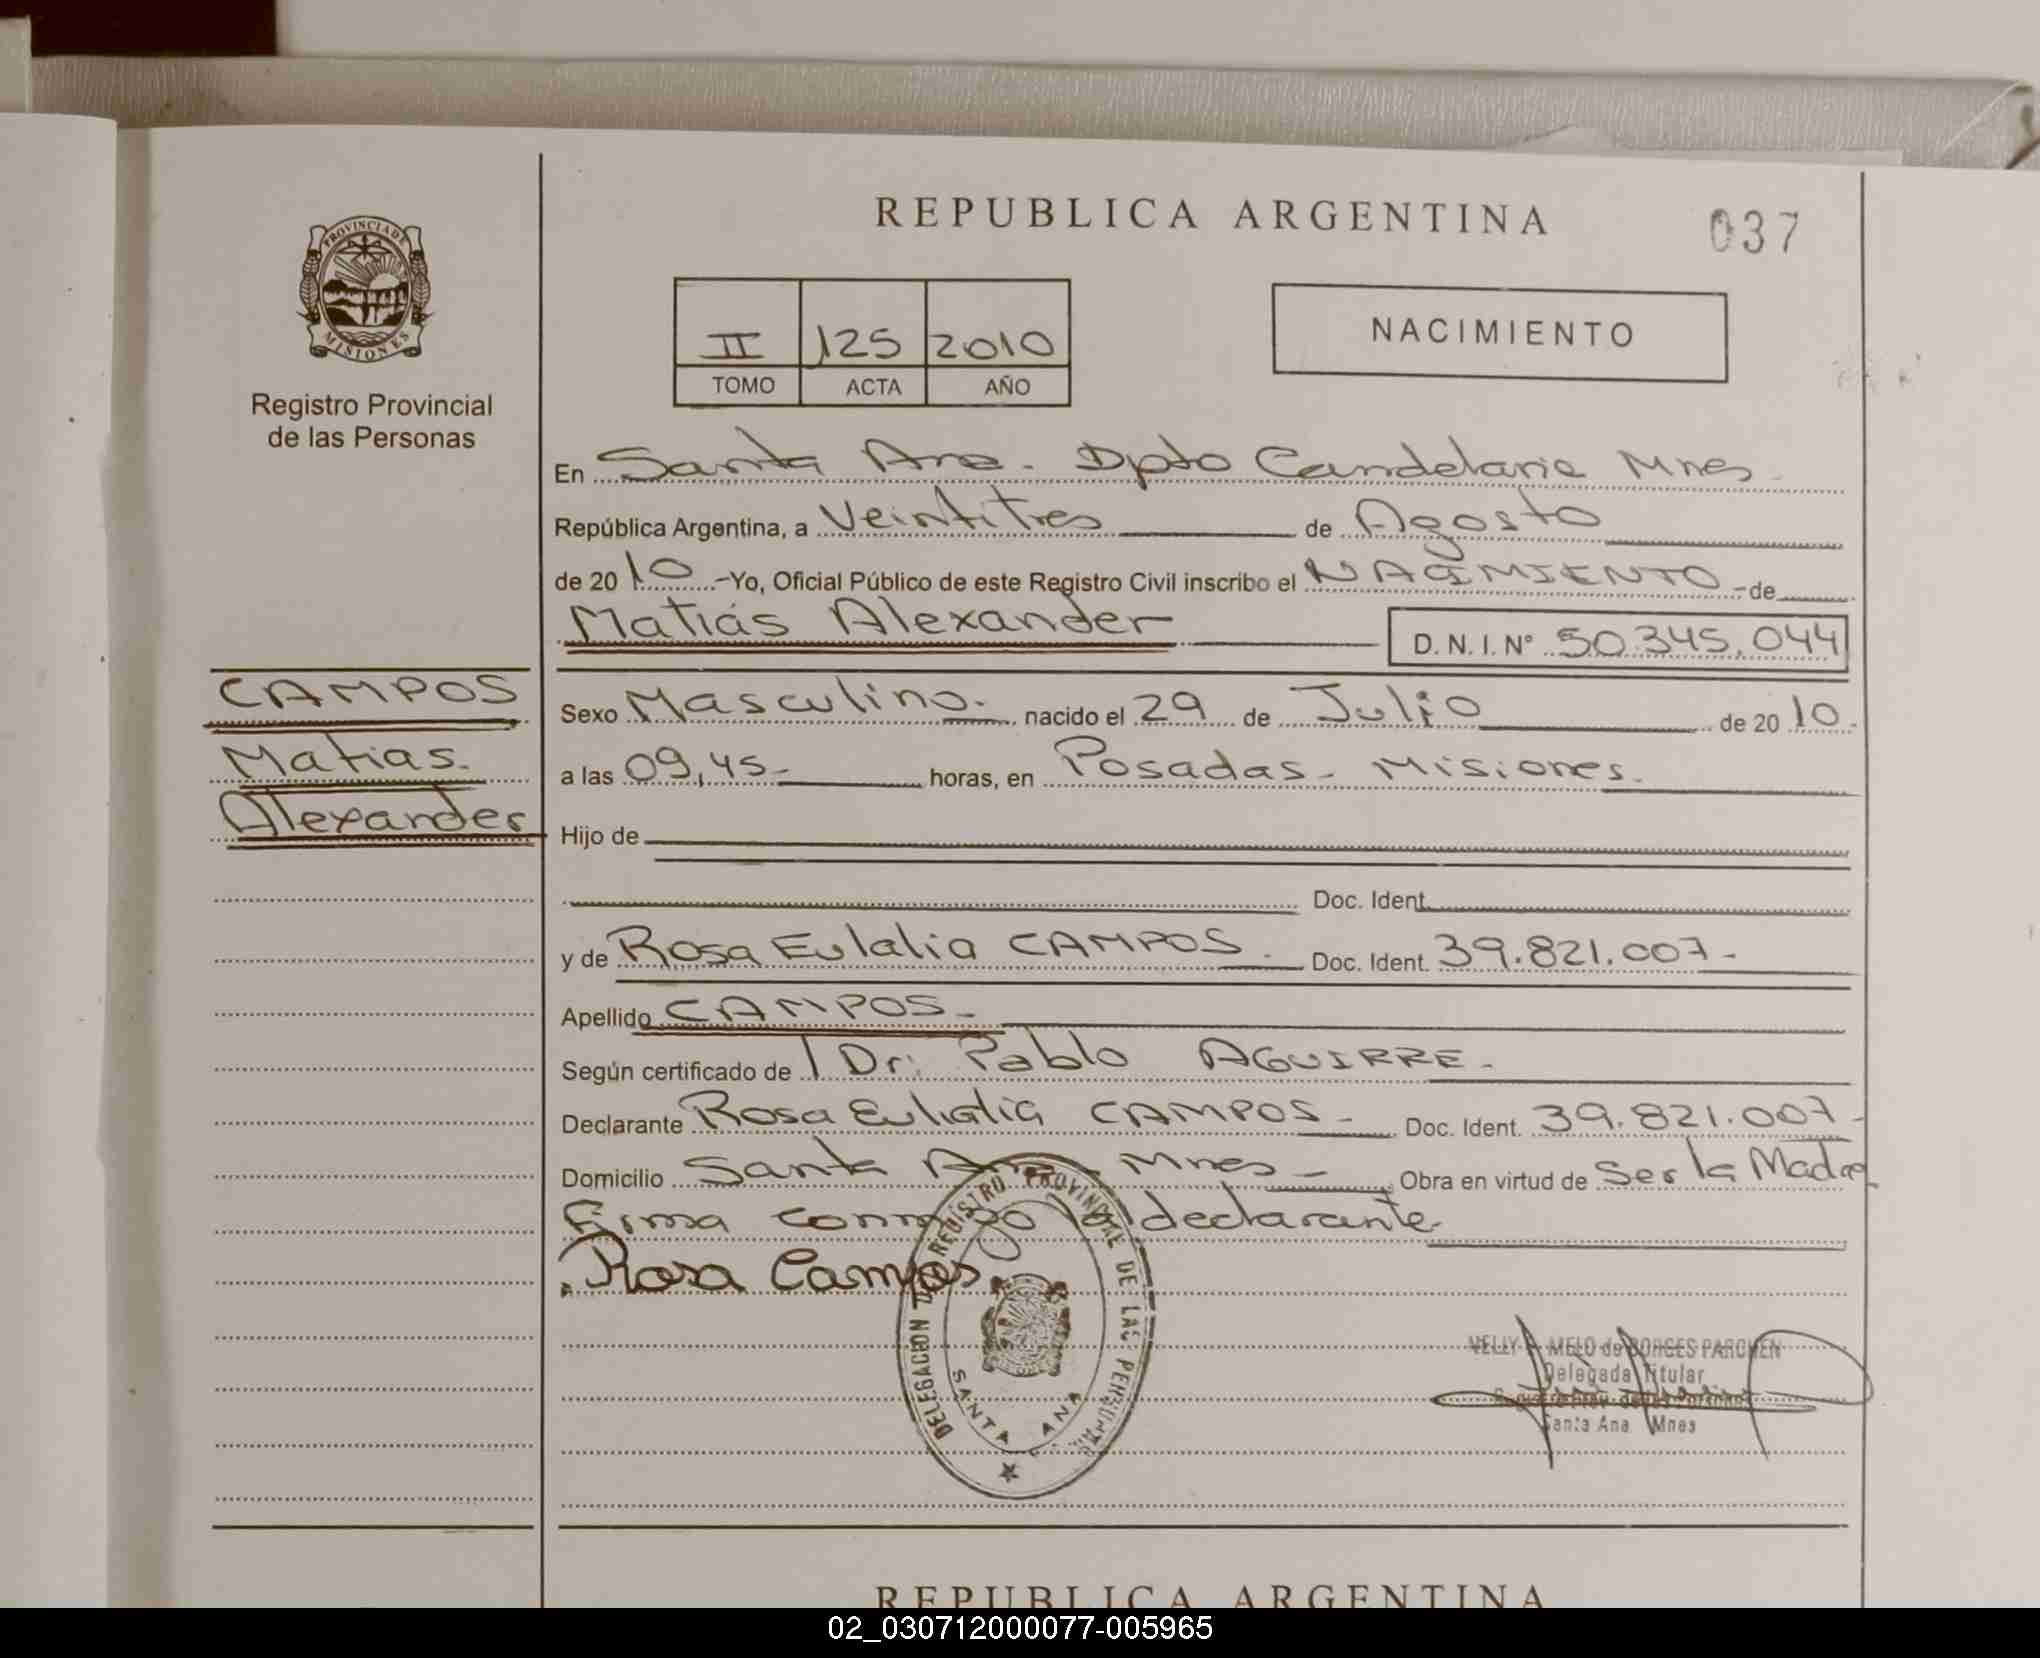 REPUBLICA ARGENTINA
037
PROVINCIA DE MISIONES
Registro Provincial
de las Personas
II 125 2010
TOMO ACTA AÑO
NACIMIENTO
En Santa Ana. Dpto Candelaria Mnes
República Argentina, a Veintitres de Agosto
de 2010 -Yo, Oficial Público de este Registro Civil inscribo el NACIMIENTO -de
Matiás Alexander D. N. I. N° 50.345.044
CAMPOS
Matias.
Alexander
Sexo Masculino. nacido el 29 de Julio de 2010.
a las 09,45- horas, en Posadas - Misiones.
Hijo de
Doc. Ident.
y de Rosa Eulalia CAMPOS. Doc. Ident. 39.821.007-
Apellido CAMPOS-
Según certificado de Dr: Pablo AGUIRRE-
Declarante Rosa Eulalia CAMPOS- Doc. Ident. 39.821.007-
Domicilio Santa Ana - Mnes - Obra en virtud de Ser la Madre
Firma conmigo la declarante
Rosa Campos
DELEGACION DEL REGISTRO PROVINCIAL DE LAS PERSONAS
SANTA ANA
NELLY MELO de BORGES PARCHEN
Delegada Titular
Santa Ana Mnes
REPUBLICA ARGENTINA
02_030712000077-005965